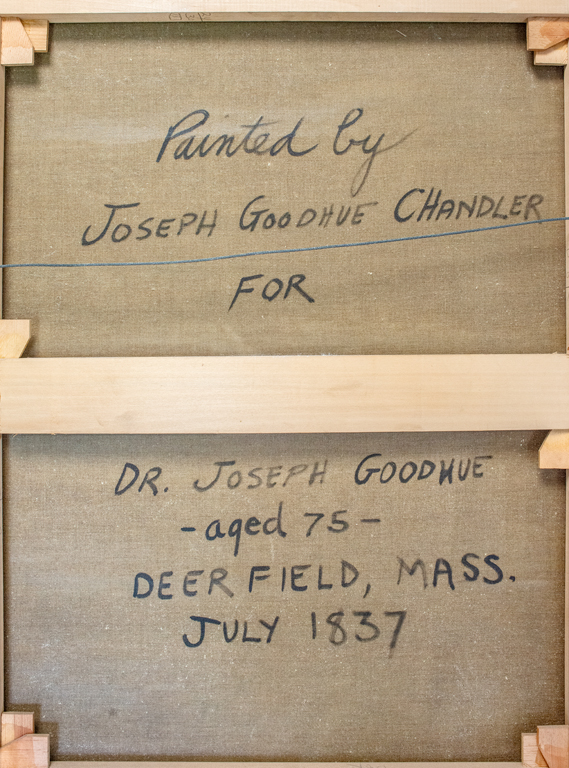 Painted by
JOSEPH GOODHUE CHANDLER
FOR
DR. JOSEPH GOODHUE
-aged 75-
DEERFIELD, MASS.
JULY 1837